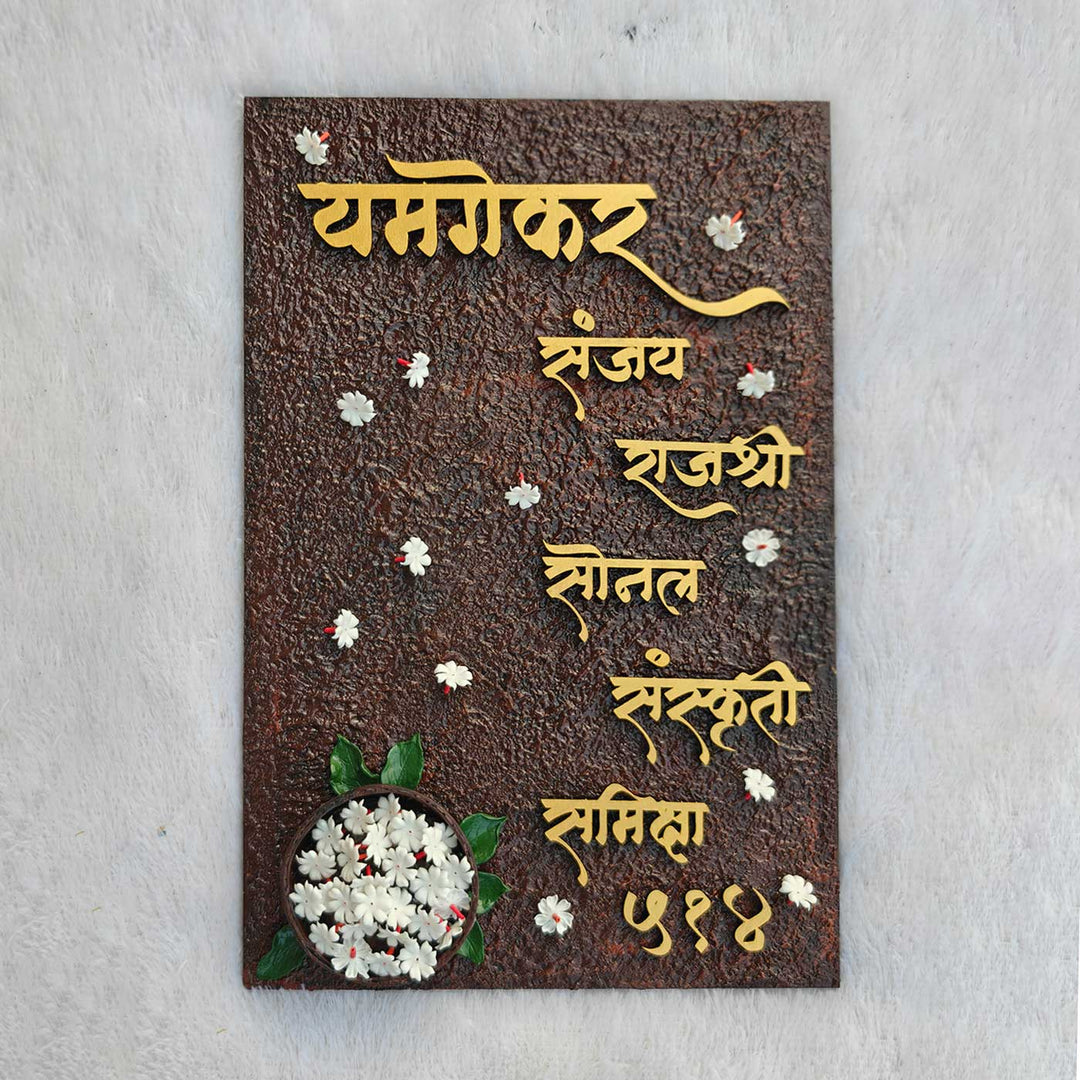 यमगेकर
संजय
राजश्री
सोनल
संस्कृती
समिक्षा
५१४